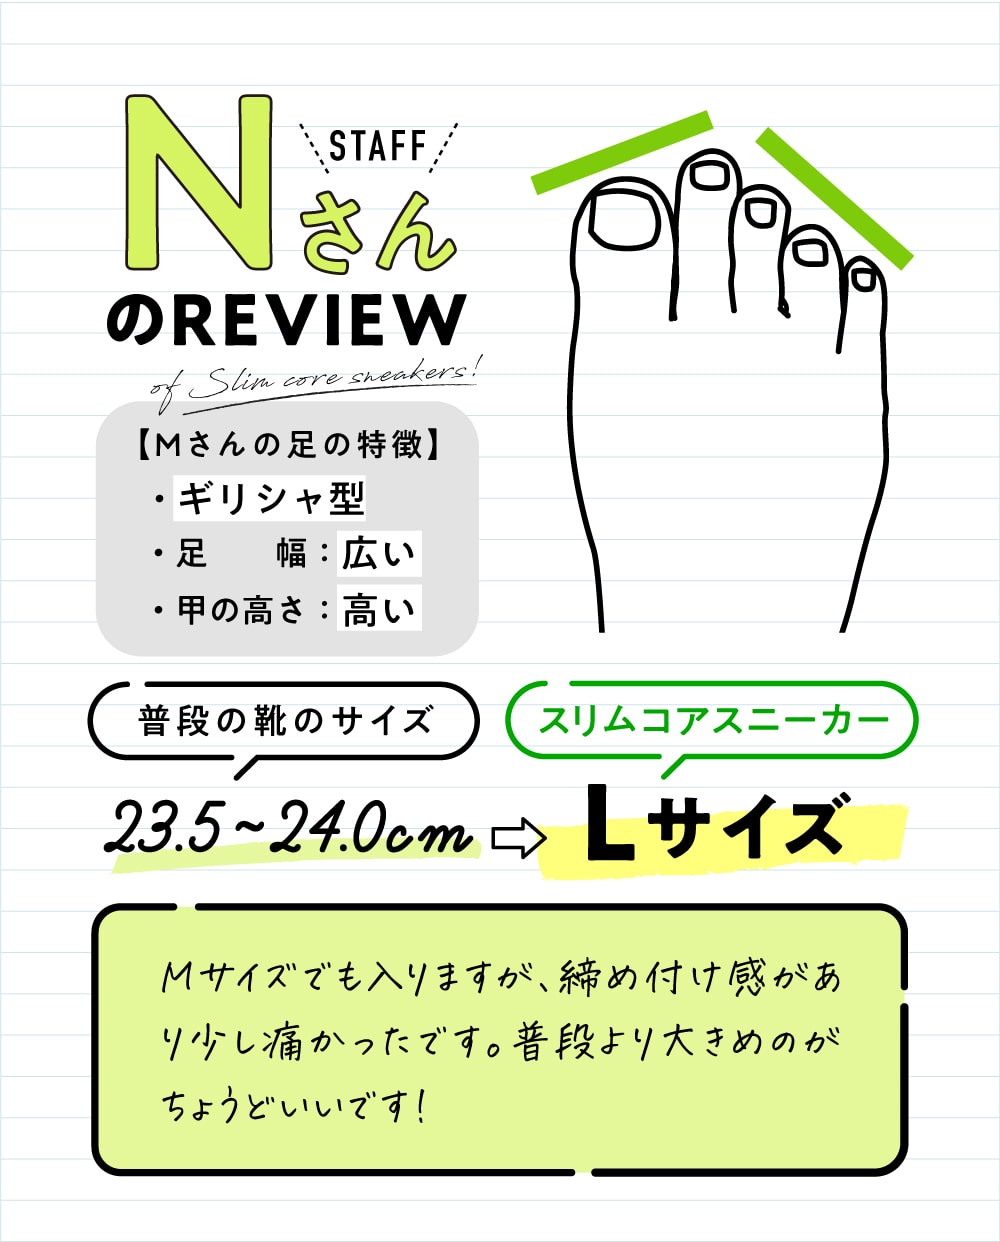 STAFF
Nさん
のREVIEW
of Slim core sneakers!
【Mさんの足の特徴】
・ギリシャ型
・足　幅：広い
・甲の高さ：高い
普段の靴のサイズ
スリムコアスニーカー
23.5~24.0cm ⇨ Lサイズ
Mサイズでも入りますが、締め付け感があ
り少し痛かったです。普段より大きめのが
ちょうどいいです！